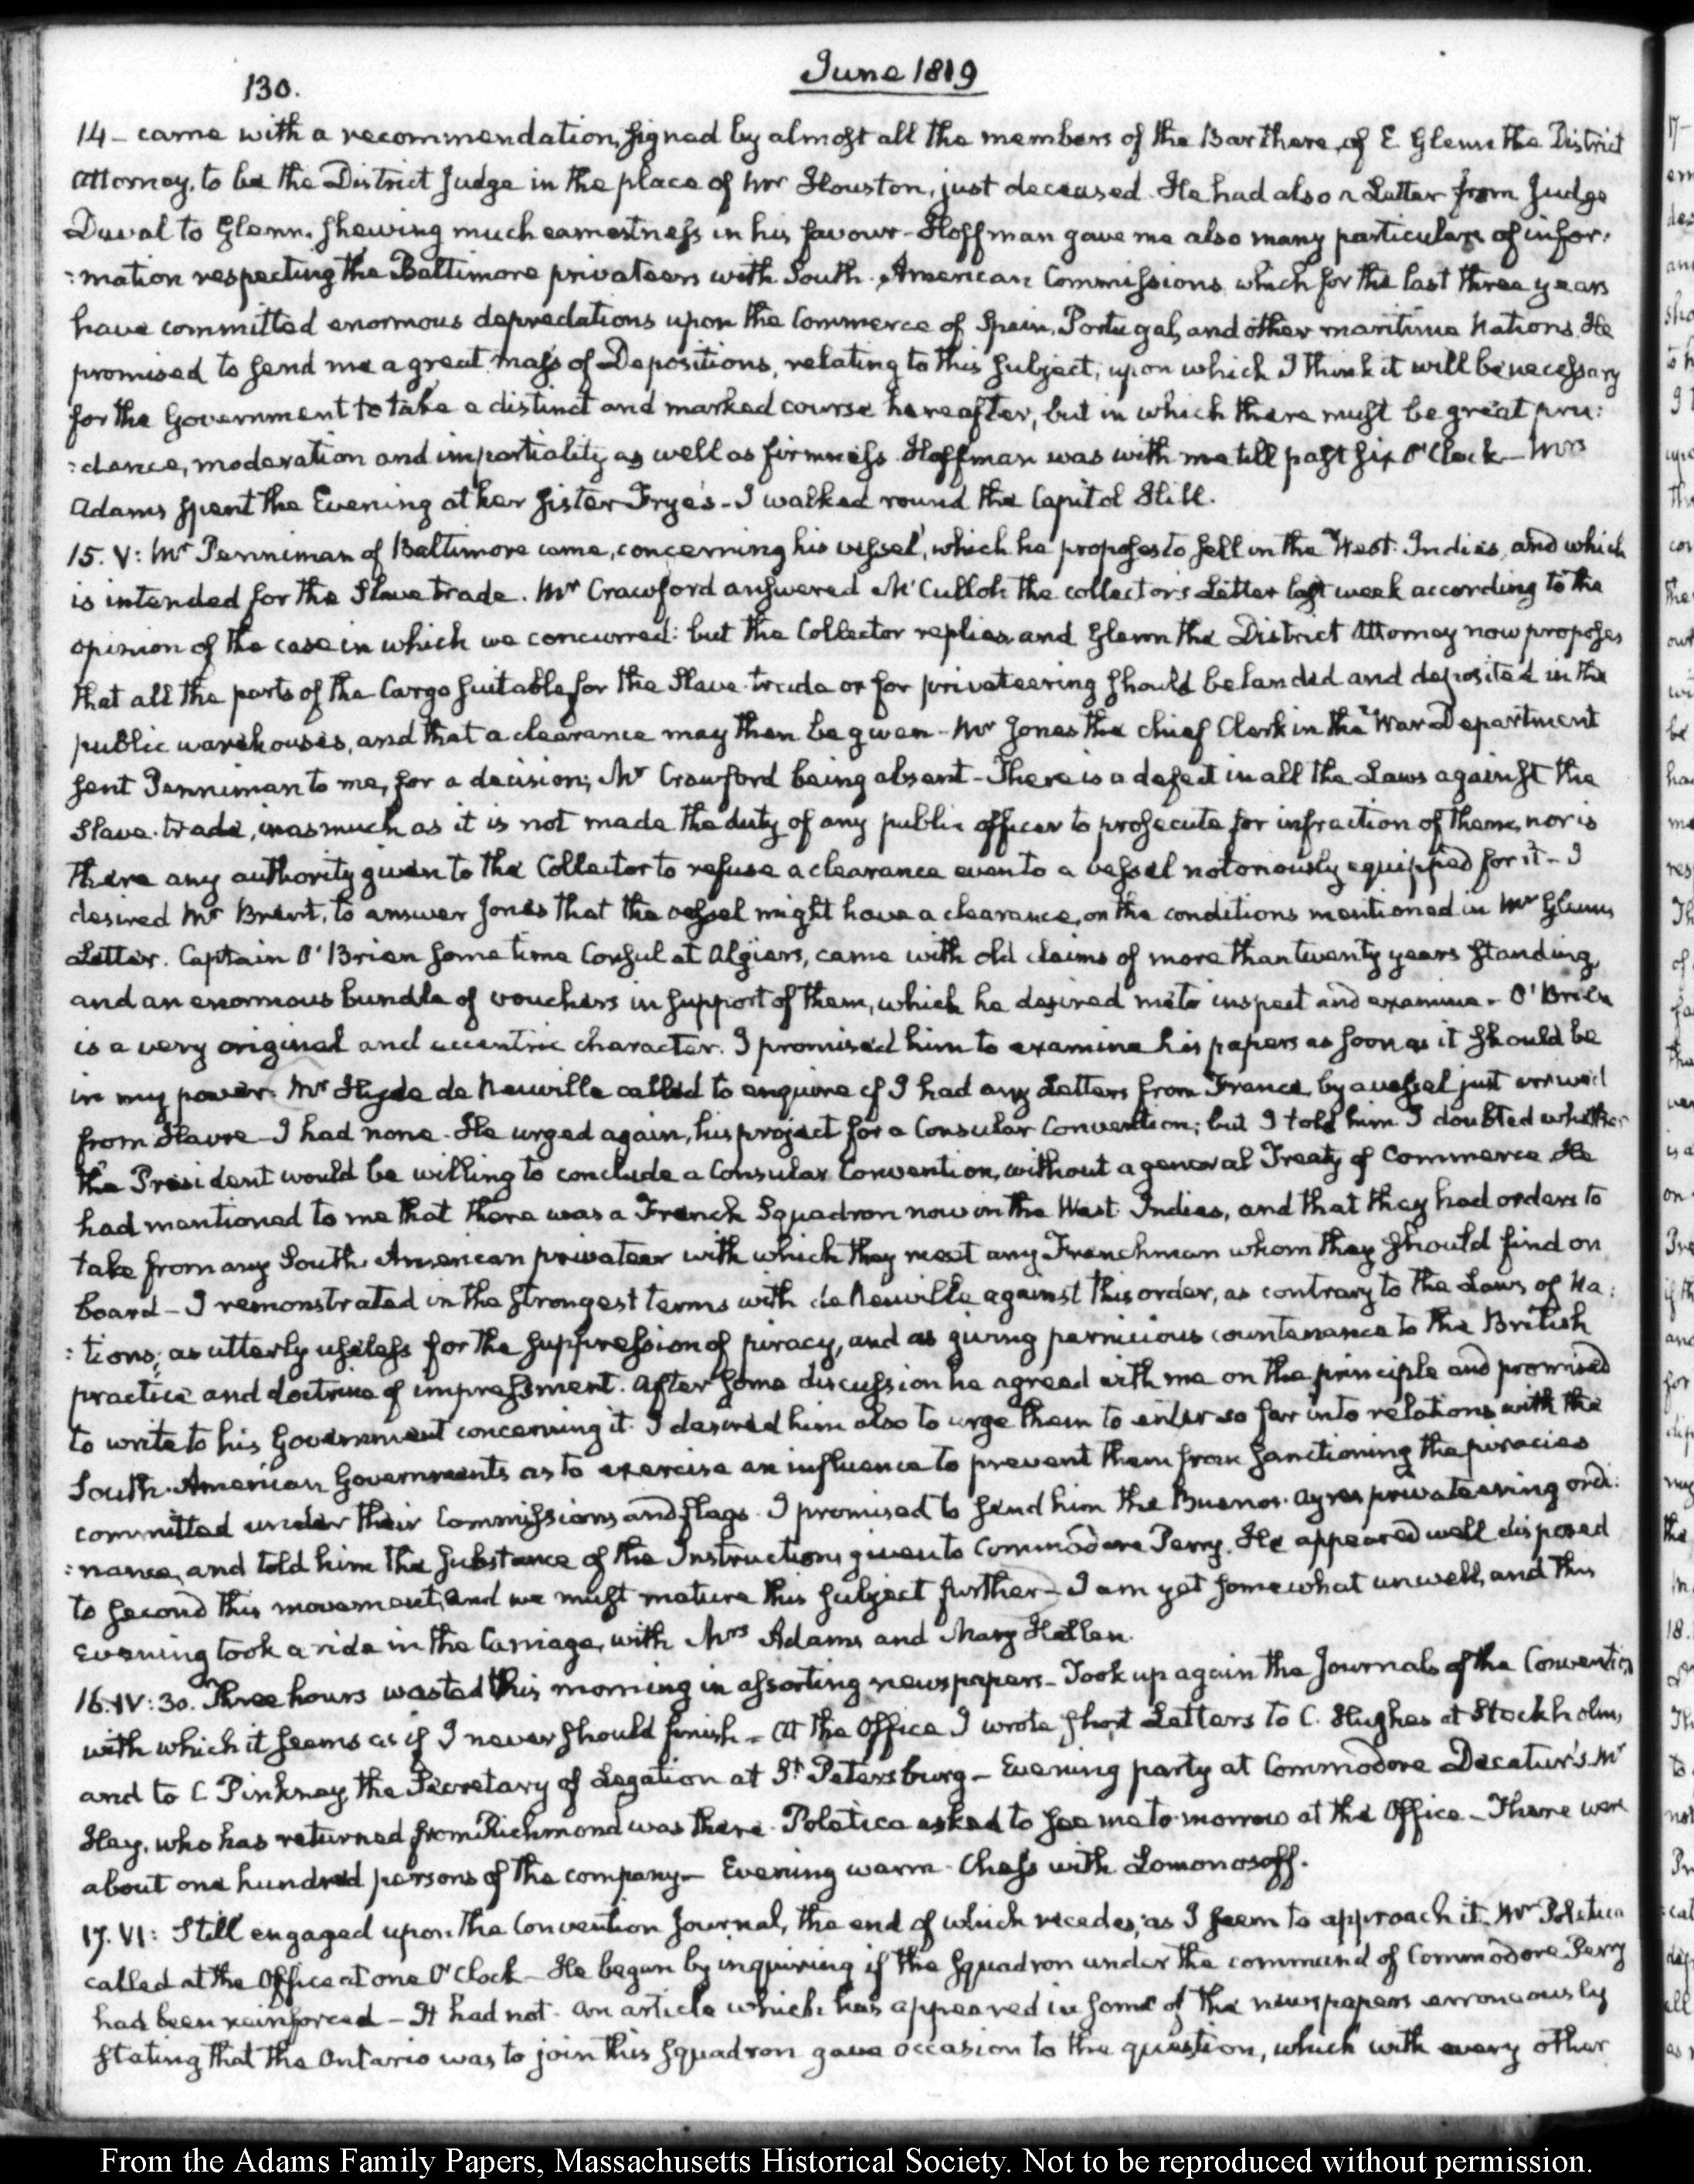 130.
June 1819
14 - came with a recommendation, signed by almost all the members of the Bar there, of E. Glenn the District
Attorney, to be the District Judge in the place of Mr Houston, just deceased. He had also a Letter from Judge
Duval to Glenn, shewing much earnestness in his favour - Hoffman gave me also many particulars of infor:
:mation respecting the Baltimore privateers with South-American Commissions, which for the last three years
have committed enormous depredations upon the Commerce of Spain, Portugal, and other maritime Nations. He
promised to send me a great mass of Depositions, relating to this subject, upon which I think it will be necessary
for the Government to take a distinct and marked course hereafter, but in which there must be great pru:
:dence, moderation and impartiality as well as firmness. Hoffman was with me till past six O'Clock - Mrs
Adams spent the Evening at her Sister Frye's - I walked round the Capitol Hill.
15. V: Mr Penniman of Baltimore came, concerning his vessel, which he proposes to sell in the West-Indies, and which
is intended for the Slave trade. Mr Crawford answered McCulloh the collector's Letter last week according to the
opinion of the case in which we concurred: but the Collector replies and Glenn the District Attorney now proposes
that all the parts of the Cargo suitable for the Slave-trade or for privateering should be landed and deposited in the
public warehouses, and that a clearance may then be given - Mr Jones the chief Clerk in the War Department
sent Penniman to me, for a decision; Mr Crawford being absent - There is a defect in all the Laws against the
Slave-trade, inasmuch as it is not made the duty of any public officer to prosecute for infraction of them, nor is
there any authority given to the Collector to refuse a clearance even to a vessel notoriously equipped for it - I
desired Mr Brent, to answer Jones that the vessel might have a clearance, on the conditions mentioned in Mr Glenn's
Letter. Captain O'Brien sometime Consul at Algiers, came with old claims of more than twenty years standing,
and an enormous bundle of vouchers in support of them, which he desired me to inspect and examine - O'Brien
is a very original and eccentric character. I promised him to examine his papers as soon as it should be
in my power. Mr Hyde de Neuville called to enquire if I had any Letters from France, by a vessel just arrived
from Havre - I had none. He urged again, his project for a Consular Convention; but I told him I doubted whether
the President would be willing to conclude a Consular Convention, without a general Treaty of Commerce. He
had mentioned to me that there was a French Squadron now in the West-Indies, and that they had orders to
take from any South-American privateer with which they meet any Frenchman whom they should find on
board - I remonstrated in the strongest terms with de Neuville against this order, as contrary to the Laws of Na:
:tions; as utterly useless for the suppression of piracy, and as giving pernicious countenance to the British
practice and doctrine of impressment. After some discussion he agreed with me on the principle and promised
to write to his Government concerning it. I desired him also to urge them to enter so far into relations with the
South-American Governments as to exercise an influence to prevent them from sanctioning the piracies
committed under their Commissions and flags. I promised to send him the Buenos-Ayres privateering ordi:
:nance, and told him the substance of the Instructions given to Commodore Perry. He appeared well disposed
to second this movement, and we must mature this subject further - I am yet somewhat unwell, and this
Evening took a ride in the Carriage, with Mrs Adams and Mary Hellen.
16. IV: 30. Three hours wasted this morning in assorting newspapers - Took up again the Journals of the Convention
with which it seems as if I never should finish - At the Office I wrote short Letters to C. Hughes at Stockholm,
and to C. Pinkney, the Secretary of Legation at St. Petersburg - Evening party at Commodore Decatur's. Mr
Hay, who has returned from Richmond was there. Poletica asked to see me to-morrow at the Office - There were
about one hundred persons of the company - Evening warm. Chess with Lomonosoff.
17. VI: Still engaged upon the Convention Journal, the end of which recedes, as I seem to approach it. Mr Poletica
called at the Office at one O'Clock - He began by inquiring if the squadron under the command of Commodore Perry
had been reinforced - It had not. An article which has appeared in some of the newspapers erroneously
stating that the Ontario was to join this squadron gave occasion to the question, which with every other
From the Adams Family Papers, Massachusetts Historical Society. Not to be reproduced without permission.